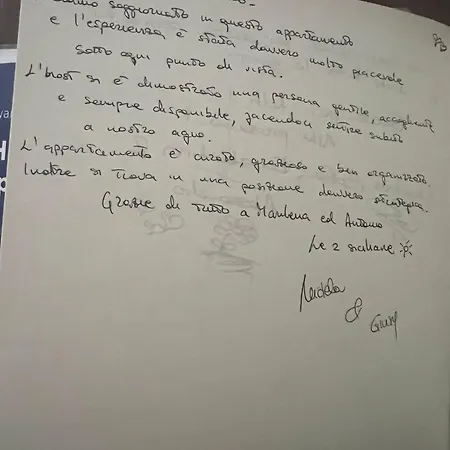 soggiornato in questo appartamento
e l'esperienza è stata davvero molto piacevole
sotto ogni punto di vista.
L'host si è dimostrato una persona gentile, accogliente
e sempre disponibile, facendoci sentire subito
a nostro agio.
L'appartamento è curato, grazioso e ben organizzato.
Inoltre si trova in una posizione davvero strategica.
Grazie di tutto a Marilena ed Antonio
Le 2 siciliane
&
Giusy